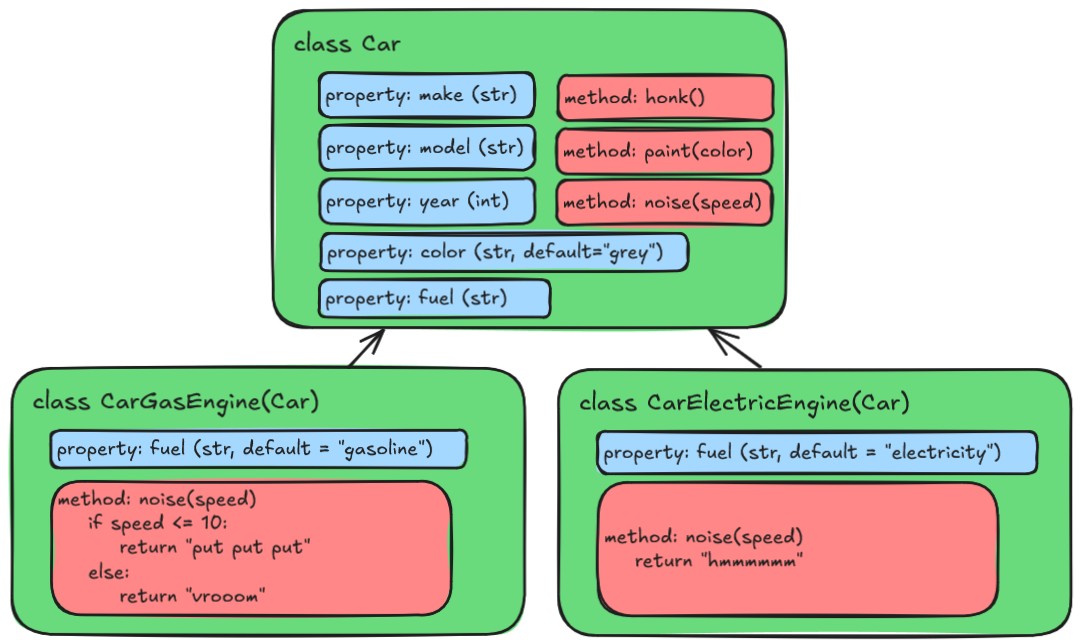 class Car
property: make (str)
method: honk()
property: model (str)
method: paint(color)
property: year (int)
method: noise(speed)
property: color (str, default="grey")
property: fuel (str)
class CarGasEngine(Car)
property: fuel (str, default = "gasoline")
method: noise(speed)
if speed <= 10:
return "put put put"
else:
return "vrooom"
class CarElectricEngine(Car)
property: fuel (str, default = "electricity")
method: noise(speed)
return "hmmmmmm"